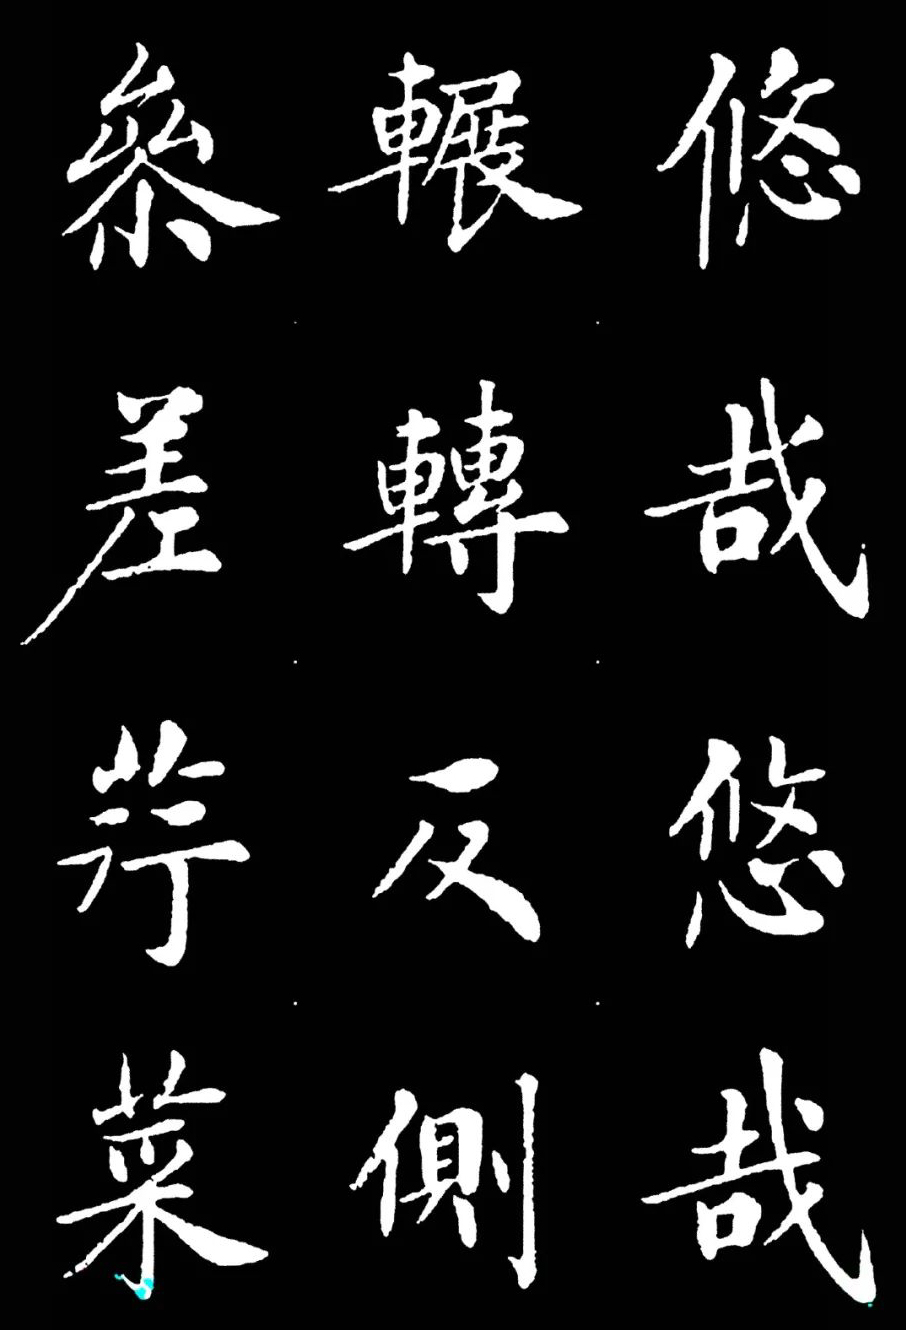 悠哉悠哉
輾轉反側
參差荇菜